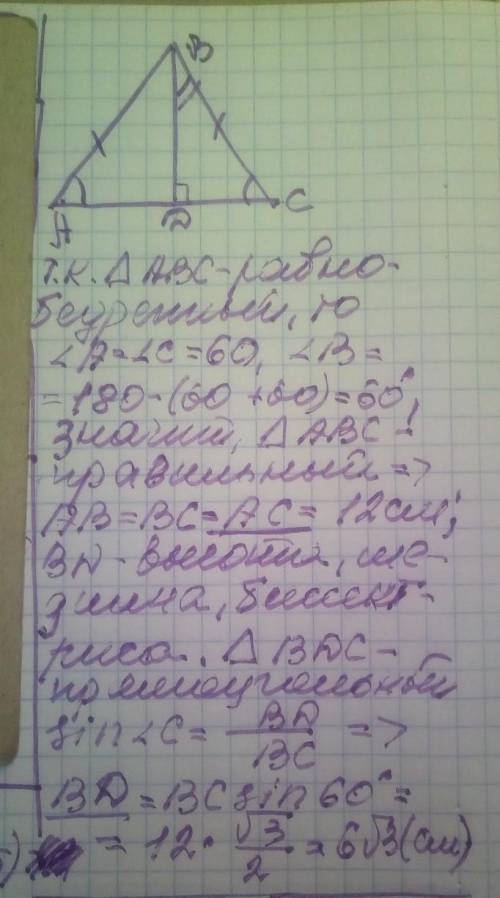 B
A
D
C
т.к. △ABC-равно-
бедренный, то
∠A=∠C=60, ∠B=
=180-(60+60)=60°,
Значит, △ABC-
правильный =>
AB=BC=AC=12см;
BD-высота, ме-
диана, биссект-
риса. △BDC-
прямоугольный
sin∠C= BD/BC =>
BD=BC sin60°=
=12·√3/2=6√3(см)